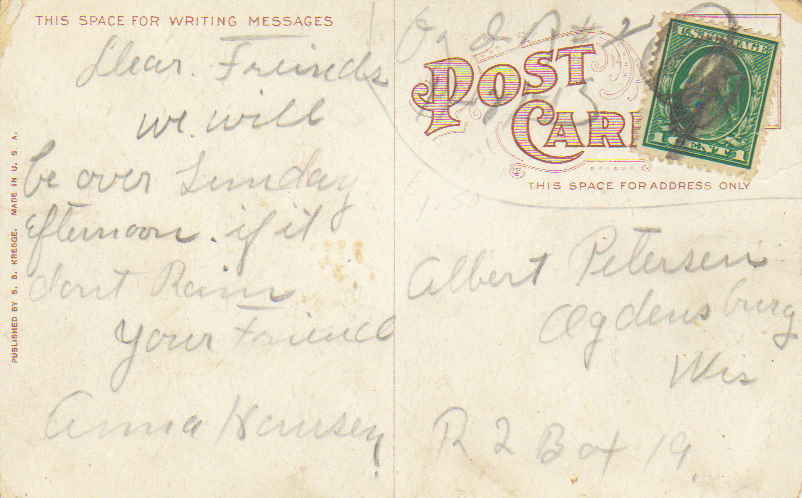 THIS SPACE FOR WRITING MESSAGES
Dear. Friends
we will
be over Sunday
afternoon. if it
dont Rain
Your Friend
Anna Hansen
PUBLISHED BY S. S. KRESGE. MADE IN U. S. A.
POST
CARD
U.S. POSTAGE
1 CENT 1
THIS SPACE FOR ADDRESS ONLY
Albert Petersen
Ogdensburg
Wis
R 2 Box 19